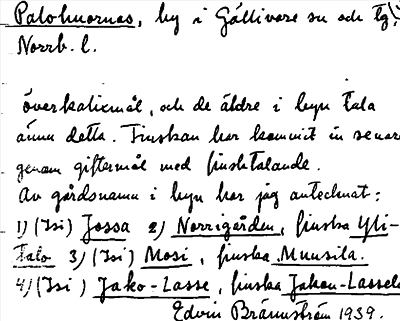 Palohuornas, by i Gällivare sn och tg,
Norrb. l.
överkalixmål, och de äldre i byn tala
ännu detta. Finskan har kommit in senare
genom giftermål med finsktalande.
Av gårdsnamn i byn har jag antecknat:
1) (Isi) Jossa 2) Norrigården, finska Yli-
talo 3) (Isi) Mosi, finska Muusila.
4) (Isi) Jako-Lasse, finska Jakon-Lassela
Edvin Brännström 1939.